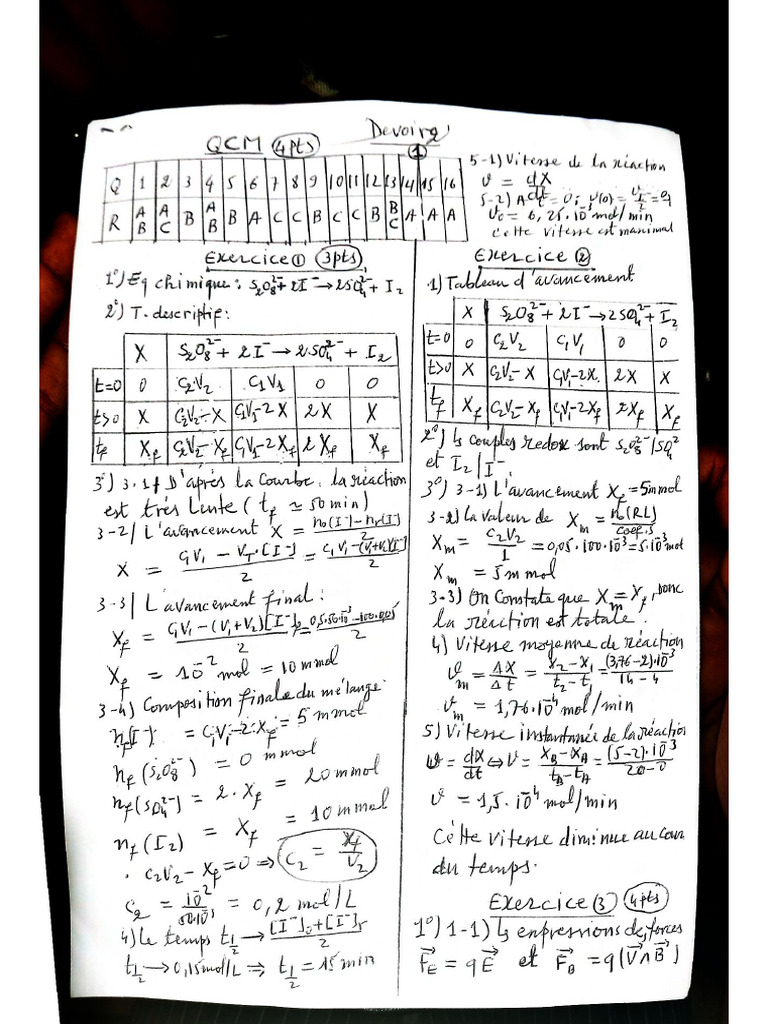 Devoir
①
QCM (4pts)
Q 1 2 3 4 5 6 7 8 9 10 11 12 13 14 15 16
R AB AC B AB B A C B C C C B BC A A A
Exercice ① (3pts)
1°) Eq chimique: S₂O₈²⁻ + 2I⁻ → 2SO₄²⁻ + I₂
2°) T. descriptif:
X S₂O₈²⁻ + 2I⁻ → 2SO₄²⁻ + I₂
t=0 0 C₂V₂ C₁V₁ 0 0
t>0 X C₂V₂-X C₁V₁-2X 2X X
tf Xf C₂V₂-Xf C₁V₁-2Xf 2Xf Xf
3°) 3.1) D'après la Courbe: la réaction
est très lente (tf ≃ 50 min)
3-2/ L'avancement X = (n₀(I⁻) - nₜ(I⁻))/2
X = (C₁V₁ - V_T·[I⁻])/2 = (C₁V₁-(V₁+V₂)[I⁻])/2
3-3/ L'avancement final:
Xf = (C₁V₁-(V₁+V₂)[I⁻])/2 =
Xf = 10⁻² mol = 10 mmol
3-4) Composition finale du mélange
nf(I⁻) = C₁V₁-2·Xf = 5 mmol
nf(S₂O₈²⁻) = 0 mmol
nf(SO₄²⁻) = 2·Xf = 20 mmol
nf(I₂) = Xf = 10 mmol
· C₂V₂ - Xf = 0 ⇒ C₂ = Xf/V₂
C₂ = 10⁻²/50·10⁻³ = 0,2 mol/L
4) Le temps t½ → ([I⁻]₀+[I⁻]f)/2
t½ → 0,15 mol/L ⇒ t½ = 15 min
5-1) Vitesse de la réaction
v = dX/dt
5-2) A t=0; v(0) =
v₀ = 6,25·10⁻ mol/min
cette vitesse est maximal
Exercice ②
1) Tableau d'avancement
X S₂O₈²⁻ + 2I⁻ → 2SO₄²⁻ + I₂
t=0 0 C₂V₂ C₁V₁ 0 0
t>0 X C₂V₂-X C₁V₁-2X 2X X
tf Xf C₂V₂-Xf C₁V₁-2Xf 2Xf Xf
2°) Ls couples redox sont S₂O₈²⁻/SO₄²⁻
et I₂/I⁻.
3°) 3-1) L'avancement Xf = 5 mmol
3-2) la valeur de Xm = n₀(RL)/coef.s
Xm = C₂V₂/1 = 0,05·100·10⁻³ = 5·10⁻³ mol
Xm = 5 mmol
3-3) On Constate que Xm = Xf, donc
la réaction est totale.
4) Vitesse moyenne de réaction
vm = ΔX/Δt = (X₂-X₁)/(t₂-t₁) = (3,76-2)·10⁻³/(14-4)
vm = 1,76·10⁻⁴ mol/min
5) Vitesse instantanée de la réaction
v = dX/dt ⇔ v = (XB-XA)/(tB-tA) = (5-2)·10⁻³/(20-0)
v = 1,5·10⁻⁴ mol/min
Cette vitesse diminue au cour
du temps.
Exercice ③ (4pts)
1°) 1-1) Ls enpressions des forces
F⃗E = qE⃗ et F⃗B = q(V⃗∧B⃗)